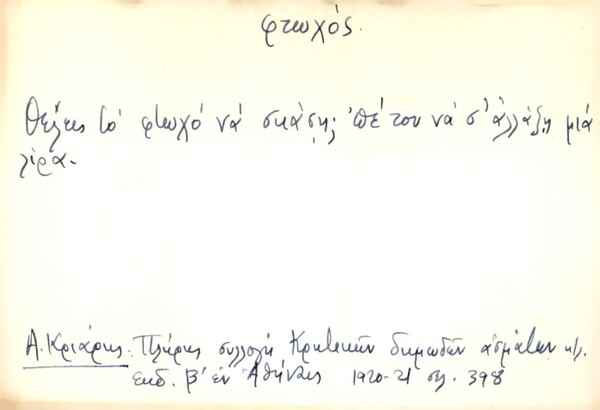 φτωχός.
Θέλεις το φτωχό νά σκάση; 'πέ του νά σ' ἀλλάξη μιά
λίρα.
Α. Κριάρης: Πλήρης συλλογή Κρητικῶν δημωδῶν ἀσμάτων κ.λ.
ἐκδ. β' ἐν Ἀθήναις 1920-21 σελ. 398